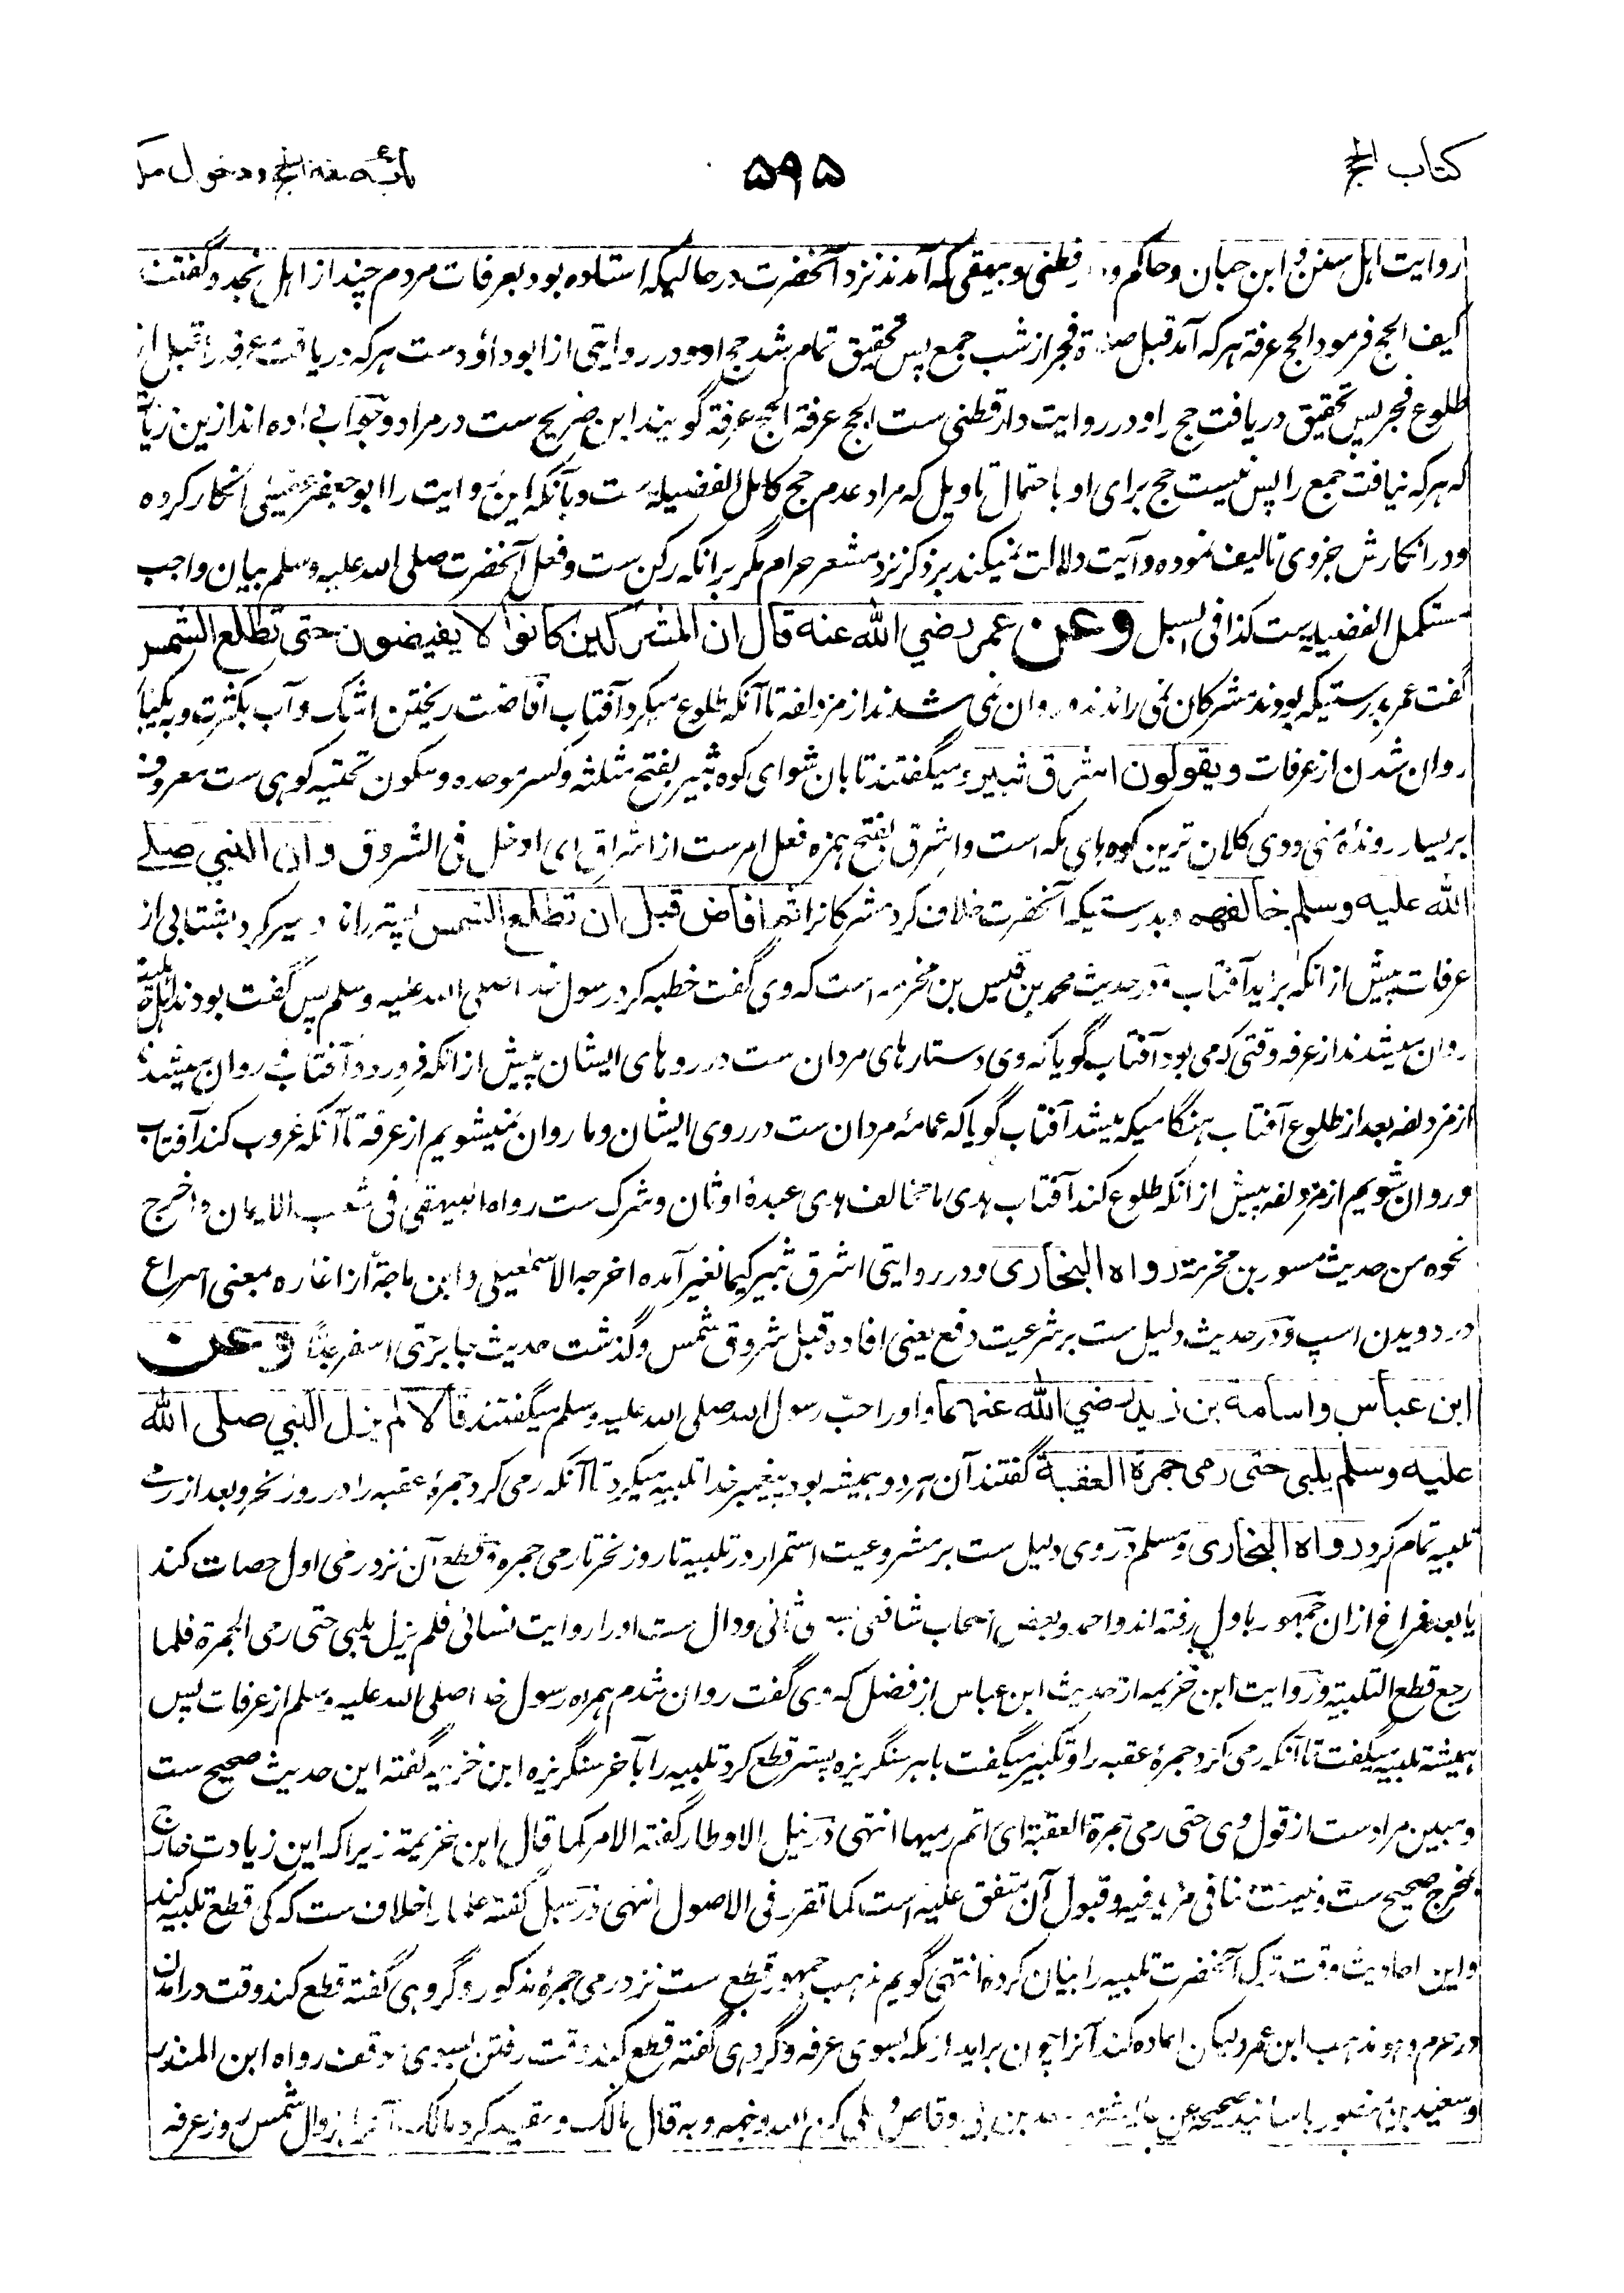 کتاب الحج ۵۹۵ باب صفة الحج ودخول مکة
روایت اہل سنن وابن حبان وحاکم و قطنی وبیہقی کہ آمدند نزد آنحضرت درحالیکہ استادہ بود بعرفات مردم چند از اہل نجد وگفتند
کیف الحج فرمود الحج عرفة ہرکہ آمد قبل صلاة فجر از شب جمع پس تحقیق تمام شد حج او ودر روایتی از ابوداؤد ست ہرکہ دریافت عرفہ را قبل از
طلوع فجر پس تحقیق دریافت حج را ودر روایت دارقطنی ست الحج عرفة الحج عرفة گویند این صریح ست در مراد وجواب دادہ اند ازین زیادت
کہ ہرکہ نیافت جمع را پس نیست حج برای او باحتمال تاویل کہ مراد عدم حج کامل الفضیلہ ست وبآنکہ این روایت را ابوجعفر عقیلی انکار کردہ
ودر انکارش جزوی تالیف نمودہ وآیت دلالت نمیکند بر ذکر نزد مشعر حرام مگر برانکہ رکن ست وفعل آنحضرت صلی اللہ علیہ وسلم بیان واجب
مستکمل الفضیلہ ست کذا فی السبل وعن عمر رضي الله عنه قال ان المشركين كانوا لا يفيضون حتى تطلع الشمس
گفت عمر بدرستیکہ بودند مشرکان نمی راندند وروان نمی شدند از مزدلفہ تا آنکہ طلوع میکرد آفتاب افاضت ریختن اشک وآب بکثرت وبیکبار
روان شدن از عرفات ويقولون اشرق ثبير ومیگفتند تابان شو ای کوہ ثبیر بفتح مثلثہ وکسر موحدہ وسکون تحتیہ کوہی ست معروف
بر یسار روندۂ منی ووی کلان ترین کوہہای مکہ است واشرق بفتح ہمزہ فعل امر ست از اشراق ای ادخل فی الشروق وان النبي صلى
الله عليه وسلم خالفهم وبدرستیکہ آنحضرت خلاف کرد مشرکانرا ثم افاض قبل ان تطلع الشمس پستر راند وسیر کرد بشتابی از
عرفات پیش از انکہ برآید آفتاب ودر حدیث محمد بن قیس بن مخرمہ است کہ وی گفت خطبہ کرد رسول خدا صلی اللہ علیہ وسلم پس گفت بودند اہل جاہلیت
روان میشدند از عرفہ وقتی کہ می بود آفتاب گویا کہ وی دستارہای مردان ست در روہای ایشان پیش از انکہ فرو رود آفتاب وروان میشدند
از مزدلفہ بعد از طلوع آفتاب ہنگامیکہ میشد آفتاب گویا کہ عمامۂ مردان ست در روی ایشان وما روان نمیشویم از عرفہ تا آنکہ غروب کند آفتاب
وروان شویم از مزدلفہ پیش از انکہ طلوع کند آفتاب ہدی ما مخالف ہدی عبدۂ اوثان وشرک ست رواہ البیہقی فی شعب الایمان واخرج
نحوہ من حدیث مسور بن مخرمة رواه البخاري ودر روایتی اشرق ثبیر کیما نغیر آمدہ اخرجہ الاسمعیلی وابن ماجة از اغارہ بمعنی اسراع
در دویدن اسپ ودر حدیث دلیل ست بر شرعیت دفع یعنی افادہ قبل شروق شمس وگذشت حدیث جابر حتی اسفر جدا وعن
ابن عباس واسامة بن زيد رضي الله عنهما واو را حب رسول اللہ صلی اللہ علیہ وسلم میگفتند قالا لم يزل النبي صلى الله
عليه وسلم يلبي حتى رمى جمرة العقبة گفتند آن ہر دو ہمیشہ بود پیغمبر خدا تلبیہ میکرد تا آنکہ رمی کرد جمرۂ عقبہ را در روز نحر وبعد از رمی
تلبیہ تمام کرد رواه البخاري ومسلم ودر وی دلیل ست بر مشروعیت استمرار در تلبیہ تا روز نحر تا رمی جمرہ وقطع آن نزد رمی اول حصات کند
یا بعد فراغ ازان جمہور باول رفتہ اند واحمد وبعض اصحاب شافعی بسوی ثانی ودال ست او را روایت نسائی فلم یزل یلبی حتی رمی الجمرة فلما
رجع قطع التلبیة ودر روایت ابن خزیمہ از حدیث ابن عباس از فضل کہ وی گفت روان شدم ہمراہ رسول خدا صلی اللہ علیہ وسلم از عرفات پس
ہمیشہ تلبیہ میگفت تا آنکہ رمی کرد جمرۂ عقبہ را وتکبیر میگفت با ہر سنگریزہ پستر قطع کرد تلبیہ را با آخر سنگریزہ ابن خزیمہ گفتہ این حدیث صحیح ست
ومبین مراد ست از قول وی حتی رمی جمرة العقبة ای اتم رمیہا انتہی ودر نیل الاوطار گفتہ الامر کما قال ابن خزیمة زیراکہ این زیادت خارج
مخرج صحیح ست ونیست منافی مزید فیہ وقبول آن متفق علیہ است کما تقرر فی الاصول انتہی ودر سبل گفتہ علما را خلاف ست کہ کی قطع تلبیہ کند
واین احادیث وقت ترک آنحضرت تلبیہ را بیان کردہ انتہی گویم مذہب جمہور قطع ست نزد رمی جمرۂ مذکور وگروہی گفتہ قطع کند وقت درآمدن
در حرم وہو مذہب ابن عمر ولیکن اعادہ کند آنرا چون براید از مکہ بسوی عرفہ وگروہی گفتہ قطع کند وقت رفتن بسوی موقف رواہ ابن المنذر
وسعید بن منصور باسانید صحیحہ عن عایشہ وسعد بن ابی وقاص وعلی کرم اللہ وجہہ وبہ قال مالک ومقید کرد مالک آنرا بزوال شمس روز عرفہ